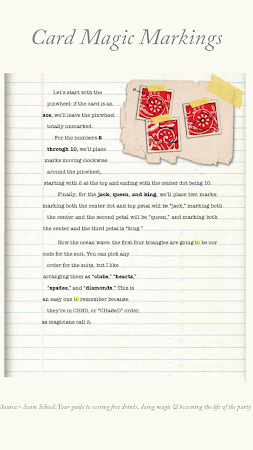 Card Magic Markings
Let's start with the
pinwheel: if the card is an
ace, we'll leave the pinwheel
totally unmarked.
For the numbers 2
through 10, we'll place
marks moving clockwise
around the pinwheel,
starting with 2 at the top and ending with the center dot being 10.
Finally, for the jack, queen, and king, we'll place two marks:
marking both the center dot and top petal will be "jack," marking both
the center and the second petal will be "queen," and marking both
the center and the third petal is "king."
Now the ocean wave: the first four triangles are going to be our
code for the suit. You can pick any
order for the suits, but I like
arranging them as "clubs," "hearts,"
"spades," and "diamonds." This is
an easy one to remember because
they're in CHSD, or "CHaSeD" order,
as magicians call it.
Source:- Scam School: Your guide to scoring free drinks, doing magic & becoming the life of the party